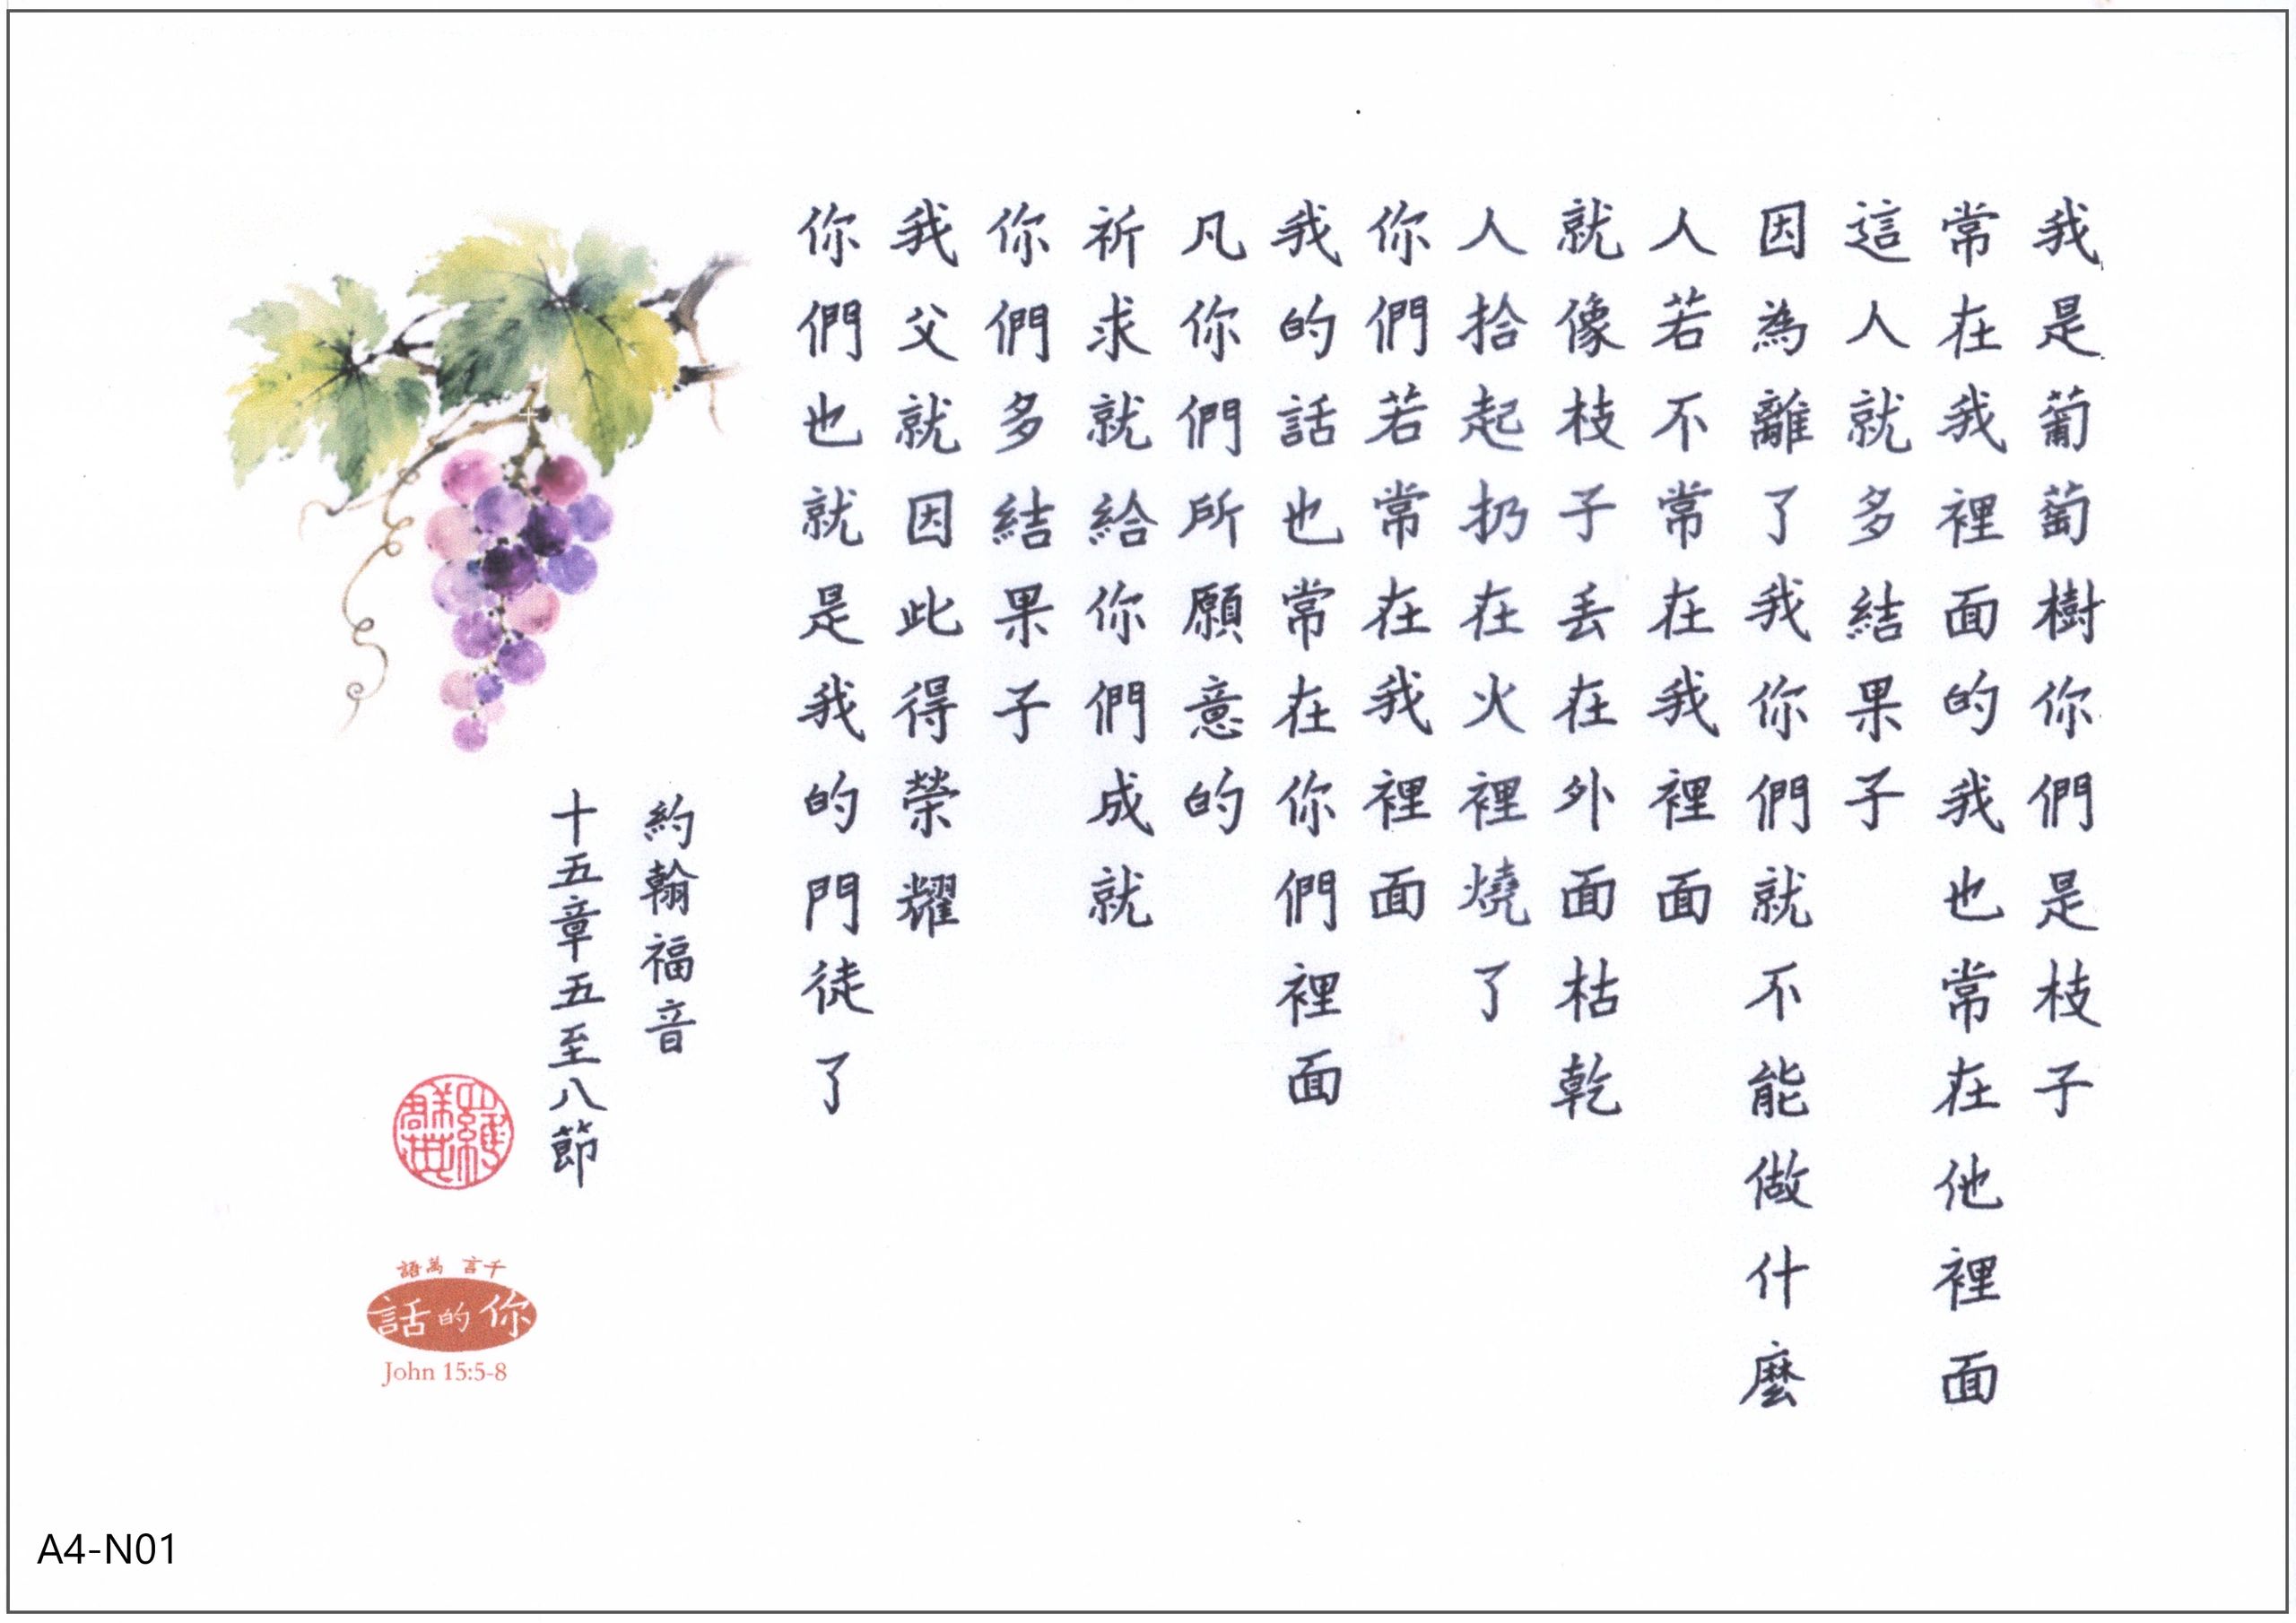 我是葡萄樹你們是枝子
常在我裡面的我也常在他裡面
這人就多結果子
因為離了我你們就不能做什麼
人若不常在我裡面
就像枝子丟在外面枯乾
人拾起扔在火裡燒了
你們若常在我裡面
我的話也常在你們裡面
凡你們所願意的
祈求就給你們成就
你們多結果子
我父就因此得榮耀
你們也就是我的門徒了
約翰福音
十五章五至八節
千言萬語
你的話
John 15:5-8
A4-N01